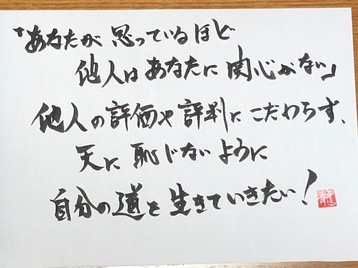 「あなたが思っているほど
他人はあなたに関心がない」
他人の評価や評判にこだわらず、
天に恥じないように
自分の道を生きていきたい!